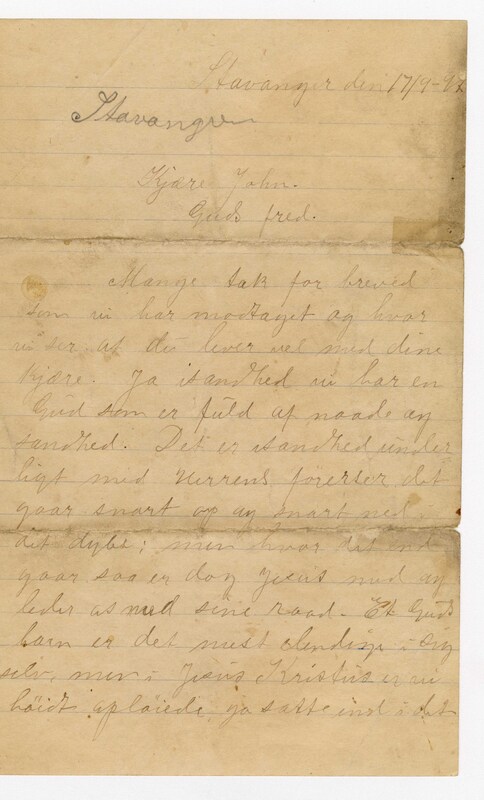 Stavanger den 17/9-92
Stavanger
Kjære John.
Guds fred.
Mange tak for breved
som vi har modtaget og hvor
vi ser at du lever vel med dine
kjære. Ja isandhed vi har en
Gud som er fuld af naade og
sandhed. Det er isandhed under
ligt med Herrens det
gaar snart op og snart ned i
det dybe; men hvor det end
gaar saa er dog Jesus med og
leder os med sine raad. Et Guds
barn er det mest elendige i sig
selv, men i Jesus Kristus er vi
höidt oplöiede, ja satte ind i det